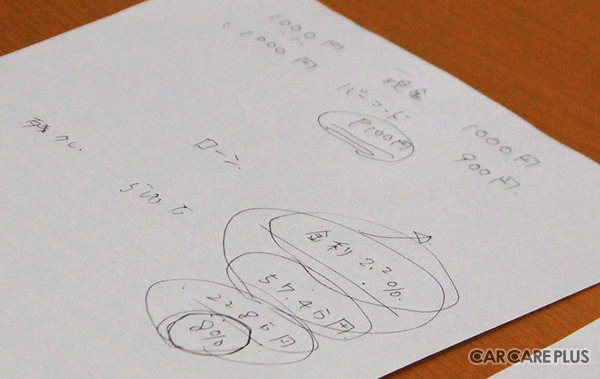 1000円
1000円
現金
バーコード
P100円
1000円
900円
残クレ
ローン
500万
金利 2.2%
57.4万円
228万円
8%
CARCARE PLUS